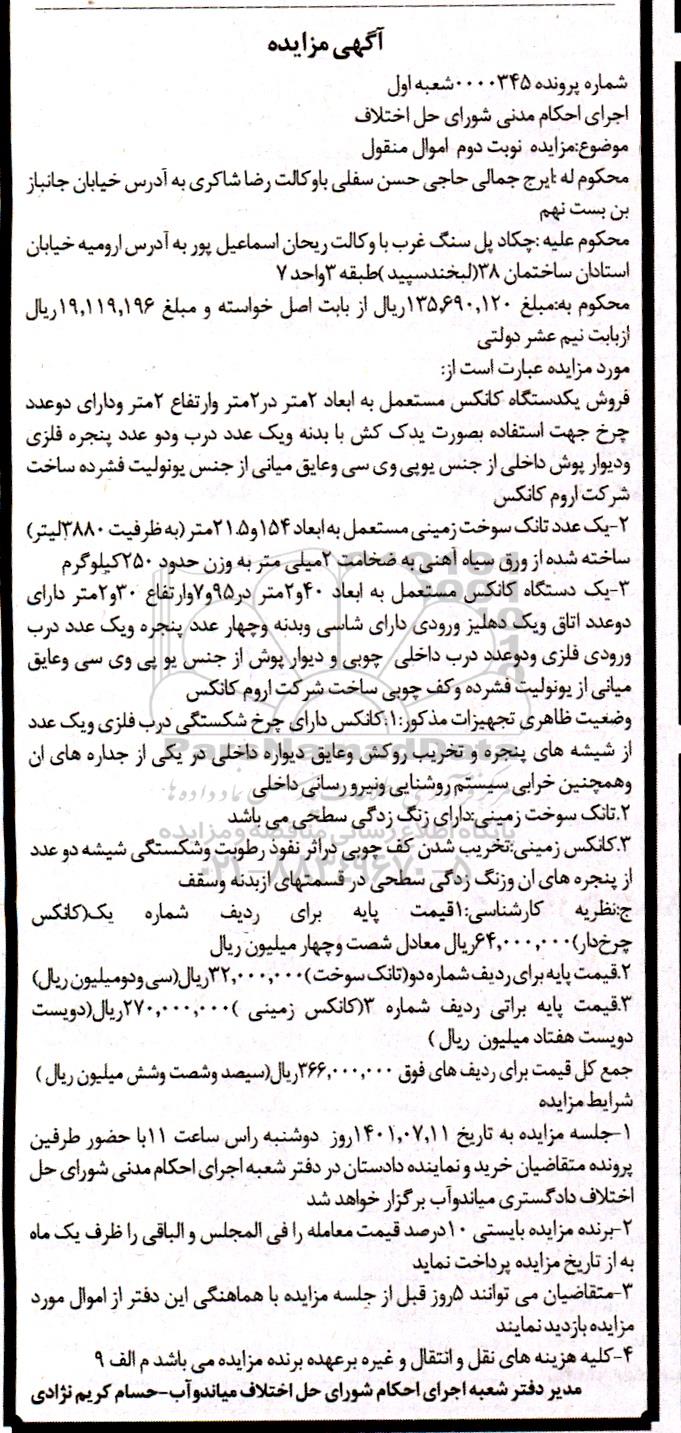 آگهی مزایده
شماره پرونده ۰۰۰۰۳۴۵شعبه اول
اجرای احکام مدنی شورای حل اختلاف
موضوع:مزایده نوبت دوم اموال منقول
محکوم له :ایرج جمالی حاجی حسن سفلی باوکالت رضا شاکری به آدرس خیابان جانباز
بن بست نهم
محکوم علیه :چکاد پل سنگ غرب با وکالت ریحان اسماعیل پور به آدرس ارومیه خیابان
استادان ساختمان ۳۸(لبخندسپید )طبقه ۳واحد ۷
محکوم به:مبلغ ۱۳۵,۶۹۰,۱۲۰ریال از بابت اصل خواسته و مبلغ ۱۹,۱۱۹,۱۹۶ریال
ازبابت نیم عشر دولتی
مورد مزایده عبارت است از:
فروش یکدستگاه کانکس مستعمل به ابعاد ۲متر در۲متر وارتفاع ۲متر ودارای دوعدد
چرخ جهت استفاده بصورت یدک کش با بدنه ویک عدد درب ودو عدد پنجره فلزی
ودیوار پوش داخلی از جنس یوپی وی سی وعایق میانی از جنس یونولیت فشرده ساخت
شرکت اروم کانکس
۲-یک عدد تانک سوخت زمینی مستعمل به ابعاد ۱۵۴و۲۱.۵متر (به ظرفیت ۳۸۸۰لیتر)
ساخته شده از ورق سیاه آهنی به ضخامت ۲میلی متر به وزن حدود ۲۵۰کیلوگرم
۳-یک دستگاه کانکس مستعمل به ابعاد ۴۰و۲متر در۹۵و۷وارتفاع ۳۰و۲متر دارای
دوعدد اتاق ویک دهلیز ورودی دارای شاسی وبدنه وچهار عدد پنجره ویک عدد درب
ورودی فلزی ودوعدد درب داخلی چوبی و دیوار پوش از جنس یو پی وی سی وعایق
میانی از یونولیت فشرده وکف چوبی ساخت شرکت اروم کانکس
وضعیت ظاهری تجهیزات مذکور:۱:کانکس دارای چرخ شکستگی درب فلزی ویک عدد
از شیشه های پنجره و تخریب روکش وعایق دیواره داخلی در یکی از جداره های ان
وهمچنین خرابی سیستم روشنایی ونیرو رسانی داخلی
۲.تانک سوخت زمینی:دارای زنگ زدگی سطحی می باشد
۳.کانکس زمینی:تخریب شدن کف چوبی دراثر نفوذ رطوبت وشکستگی شیشه دو عدد
از پنجره های ان وزنگ زدگی سطحی در قسمتهای ازبدنه وسقف
ج:نظریه کارشناسی:۱قیمت پایه برای ردیف شماره یک(کانکس
چرخ‌دار)۶۴,۰۰۰,۰۰۰ریال معادل شصت وچهار میلیون ریال
۲.قیمت پایه برای ردیف شماره دو(تانک سوخت )۳۲,۰۰۰,۰۰۰ریال(سی ودومیلیون ریال)
۳.قیمت پایه براتی ردیف شماره ۳(کانکس زمینی )۲۷۰,۰۰۰,۰۰۰ریال(دویست
دویست هفتاد میلیون ریال )
جمع کل قیمت برای ردیف های فوق ۳۶۶,۰۰۰,۰۰۰ریال(سیصد وشصت وشش میلیون ریال )
شرایط مزایده
۱-جلسه مزایده به تاریخ ۱۴۰۱,۰۷,۱۱روز دوشنبه راس ساعت ۱۱با حضور طرفین
پرونده متقاضیان خرید و نماینده دادستان در دفتر شعبه اجرای احکام مدنی شورای حل
اختلاف دادگستری میاندوآب برگزار خواهد شد
۲-برنده مزایده بایستی ۱۰درصد قیمت معامله را فی المجلس و الباقی را ظرف یک ماه
به از تاریخ مزایده پرداخت نماید
۳-متقاضیان می توانند ۵روز قبل از جلسه مزایده با هماهنگی این دفتر از اموال مورد
مزایده بازدید نمایند
۴-کلیه هزینه های نقل و انتقال و غیره برعهده برنده مزایده می باشد م الف ۹
مدیر دفتر شعبه اجرای احکام شورای حل اختلاف میاندوآب-حسام کریم نژادی
ParsNamadData
پایگاه اطلاع رسانی مناقصه و مزایده
۰۲۱-۸۸۳۴۹۶۷۰-۵